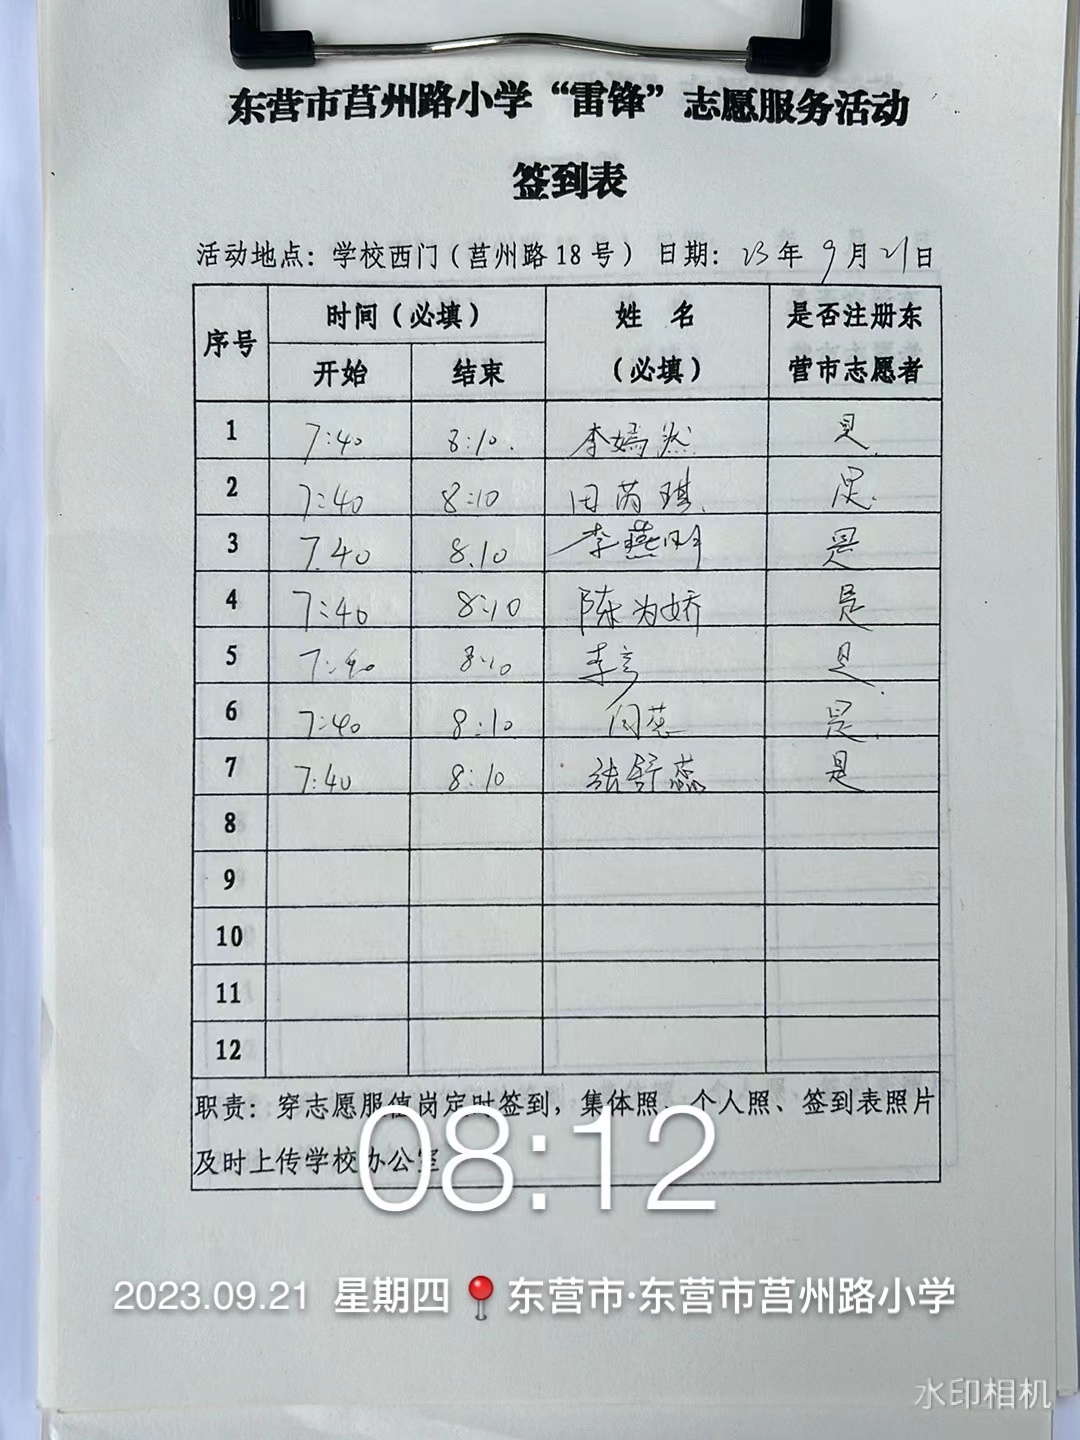 东营市莒州路小学“雷锋”志愿服务活动
签到表
活动地点：学校西门（莒州路18号） 日期：23年9月21日
序号 时间（必填） 姓 名（必填） 是否注册东营市志愿者
开始 结束
1 7:40 8:10. 李嫣然 是.
2 7:40 8:10 田芮琪. 是.
3 7.40 8.10 李燕 是
4 7:40 8:10 陈为娇 是
5 7:40 8:10 李 是.
6 7:40 8:10 是.
7 7:40 8:10 张舒蕊 是
8
9
10
11
12
职责：穿志愿服值岗定时签到，集体照、个人照、签到表照片
及时上传学校办公室
08:12
2023.09.21 星期四 东营市·东营市莒州路小学
水印相机